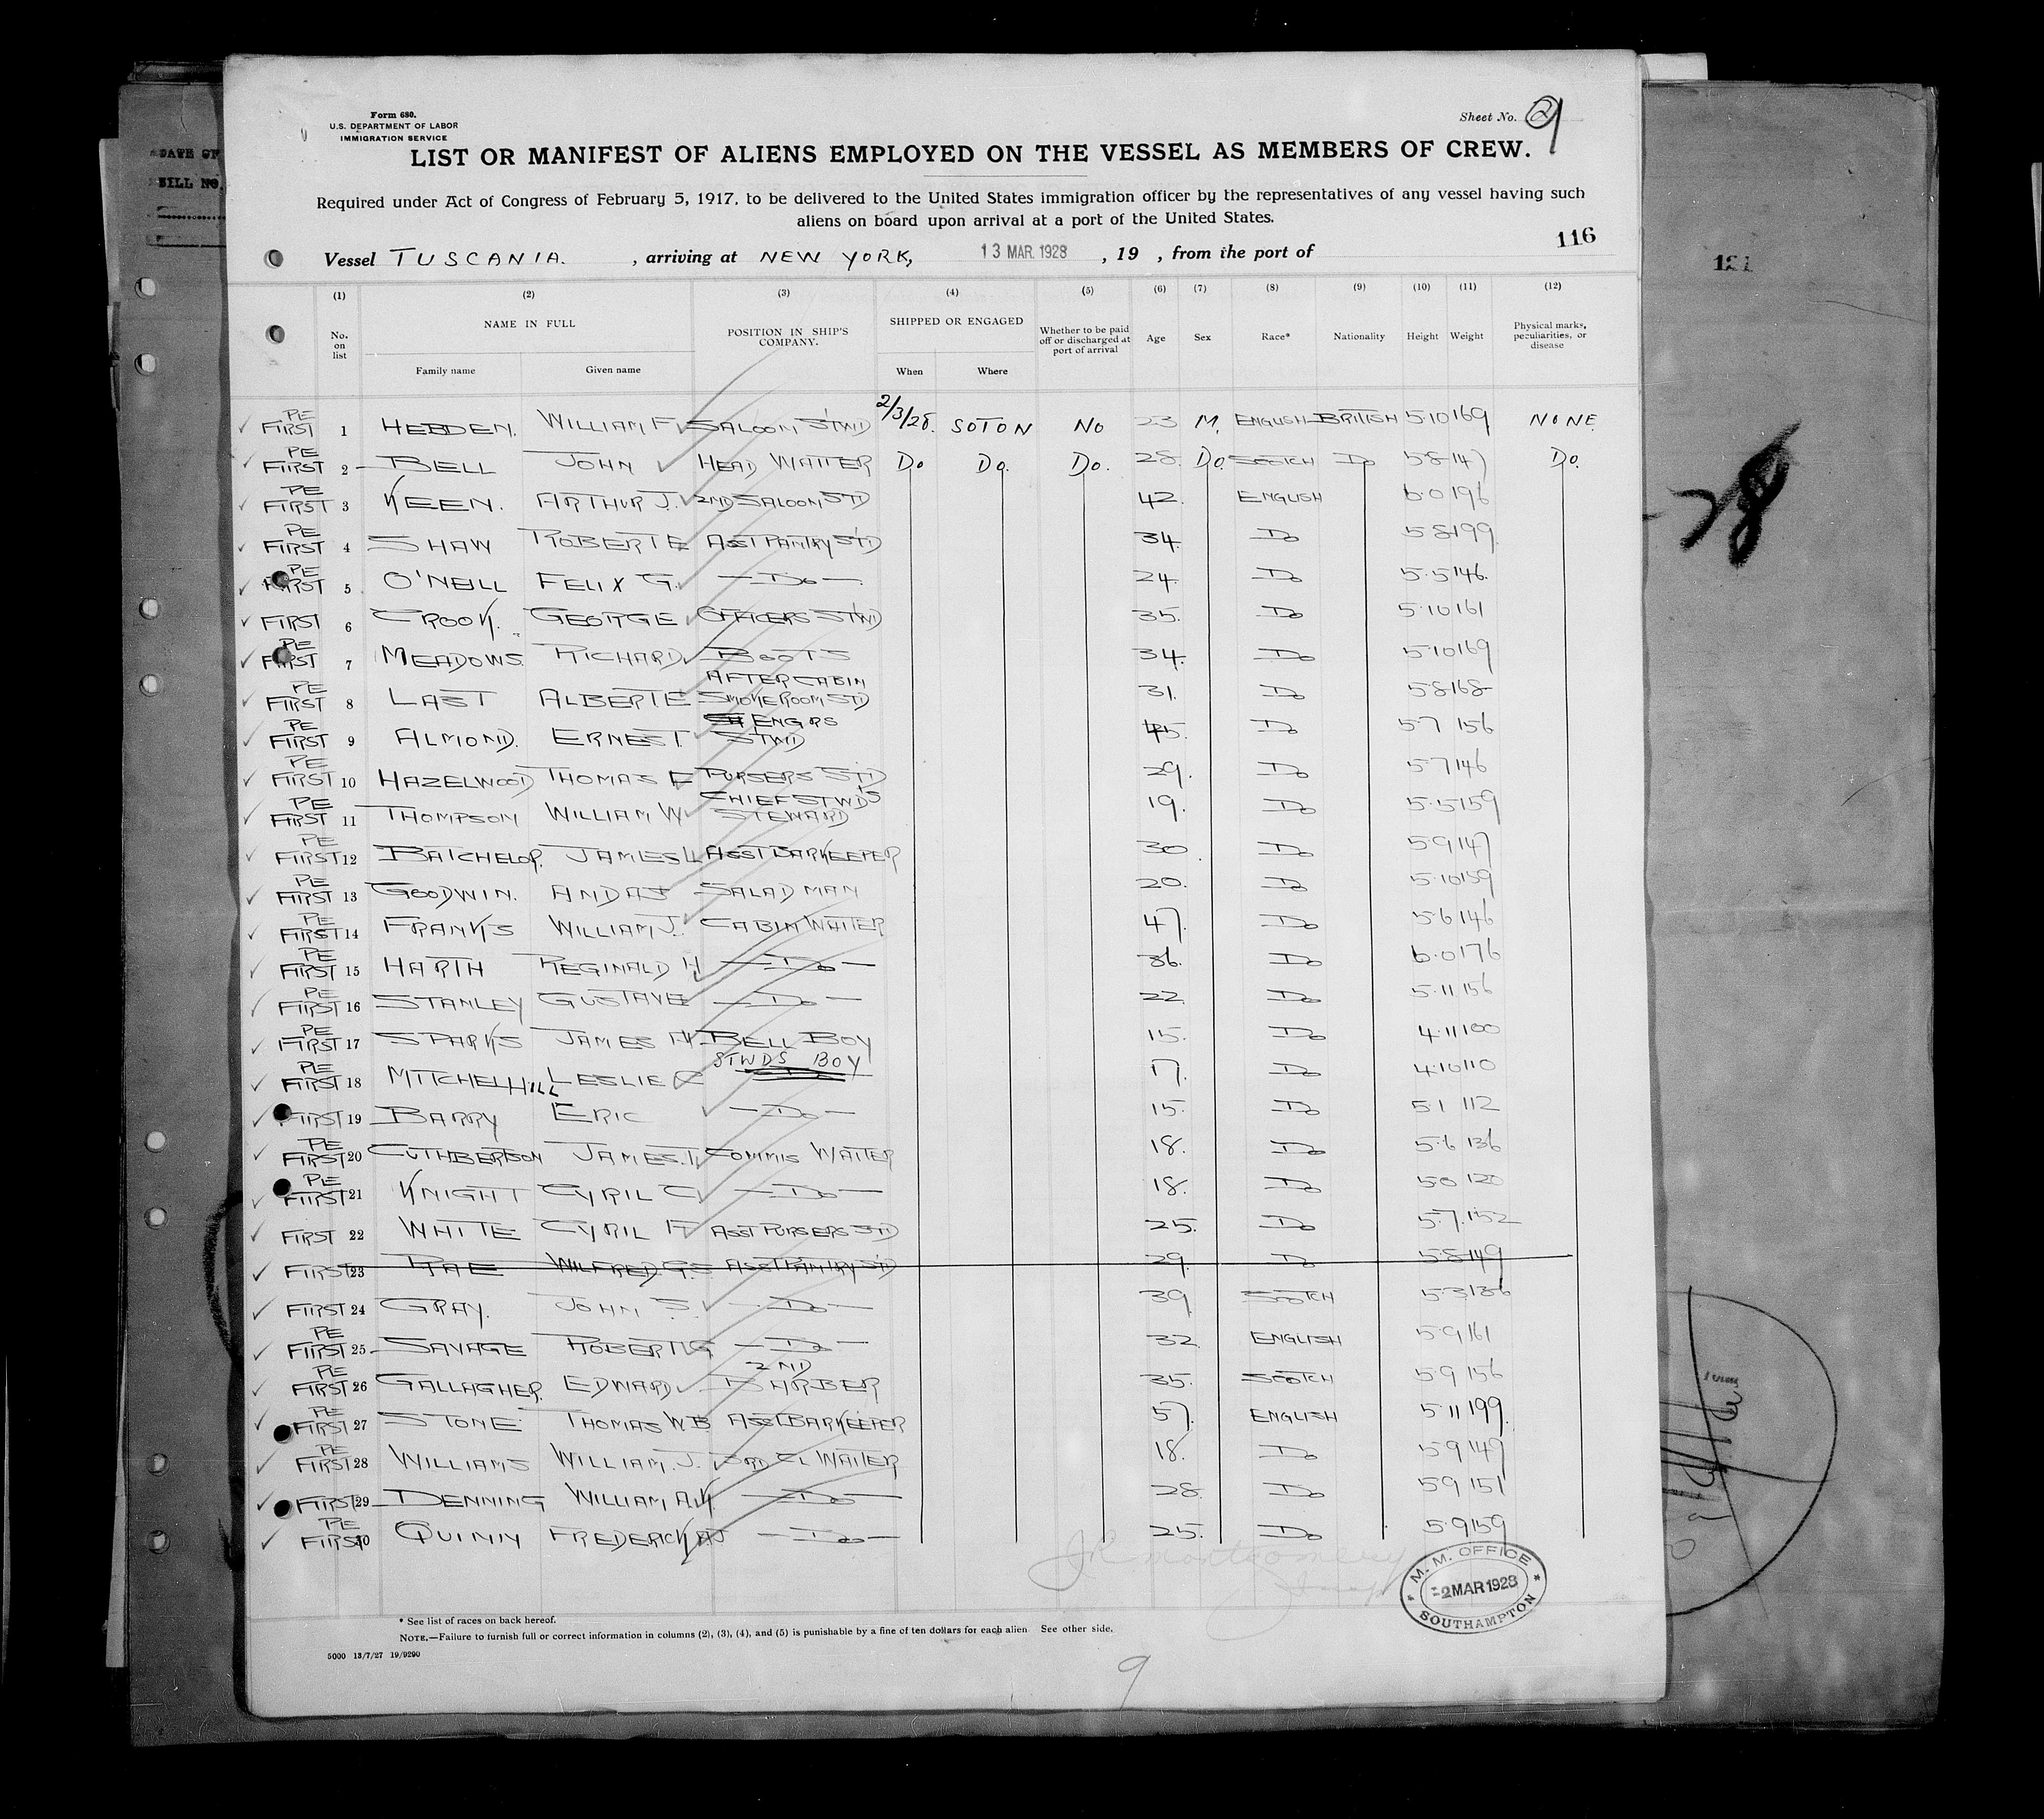 Form 680.
U.S. DEPARTMENT OF LABOR
IMMIGRATION SERVICE
Sheet No. 9
LIST OR MANIFEST OF ALIENS EMPLOYED ON THE VESSEL AS MEMBERS OF CREW.
Required under Act of Congress of February 5, 1917, to be delivered to the United States immigration officer by the representatives of any vessel having such
aliens on board upon arrival at a port of the United States.
116
Vessel TUSCANIA. , arriving at NEW YORK, 13 MAR. 1928 , 19 , from the port of
(1) (2) (3) (4) (5) (6) (7) (8) (9) (10) (11) (12)
No. on list NAME IN FULL Family name Given name POSITION IN SHIP'S COMPANY. SHIPPED OR ENGAGED When Where Whether to be paid off or discharged at port of arrival Age Sex Race* Nationality Height Weight Physical marks, peculiarities, or disease
PE FIRST 1 HEBDEN. WILLIAM F SALOON STWD 2/3/28. SOTON NO 23 M. ENGLISH BRITISH 5.10 169 NONE
PE FIRST 2 BELL JOHN HEAD WAITER Do Do. Do. 28. Do SCOTCH Do 5.8 147 Do.
PE FIRST 3 KEEN. ARTHUR J. 2ND SALOON STD 42. ENGLISH 6.0 196
PE FIRST 4 SHAW ROBERT E ASST PANTRY STD 34. Do 5.8 199
PE FIRST 5 O'NEILL FELIX G. — Do — 24. Do 5.5 146.
FIRST 6 CROOK. GEORGE OFFICERS STWD 35. Do 5.10 161
PE FIRST 7 MEADOWS. RICHARD BOOTS 34. Do 5.10 169
PE FIRST 8 LAST ALBERT E AFTER CABIN SMOKE ROOM STD 31. Do 5.8 168
PE FIRST 9 ALMOND. ERNEST. ENGRS STWD 45. Do 5.7 156
PE FIRST 10 HAZELWOOD THOMAS E PURSERS STD 29. Do 5.7 146
PE FIRST 11 THOMPSON WILLIAM W CHIEF STWDS STEWARD 19. Do 5.5 159
PE FIRST 12 BATCHELOR. JAMES L ASST BARKEEPER 30. Do 5.9 147
PE FIRST 13 GOODWIN. SALAD MAN 20. Do 5.10 159
PE FIRST 14 FRANKS WILLIAM J. CABIN WAITER 47. Do 5.6 146
PE FIRST 15 HARTH REGINALD H — Do — 36. Do 6.0 176
PE FIRST 16 STANLEY GUSTAVE — Do — 22. Do 5.11 156
PE FIRST 17 SPARKS JAMES BELL BOY 15. Do 4.11 100
PE FIRST 18 MITCHELHILL LESLIE C STWDS BOY 17. Do 4.10 110
FIRST 19 BARRY ERIC — Do — 15. Do 5.1 112
PE FIRST 20 CUTHBERTSON JAMES. COMMIS WAITER 18. Do 5.6 136
PE FIRST 21 KNIGHT CYRIL C — Do — 18. Do 5.0 120
FIRST 22 WHITE CYRIL ASST PURSERS STD 25. Do 5.7. 152
FIRST 23 RAE WILFRED G.S ASST PANTRY STD 29. Do 5.8 149
FIRST 24 GRAY. JOHN S. — Do — 39. SCOTCH 5.3 136
PE FIRST 25 SAVAGE ROBERT G — Do — 32 ENGLISH 5.9 161
PE FIRST 26 GALLAGHER. EDWARD 2ND BARBER 35. SCOTCH 5.9 156
PE FIRST 27 STONE THOMAS W.B ASST BARKEEPER 57. ENGLISH 5.11 199.
PE FIRST 28 WILLIAMS WILLIAM. J. 3RD CL WAITER 18. Do 5.9 149
FIRST 29 DENNING WILLIAM A.K. — Do — 28. Do 5.9 151
PE FIRST 30 QUINN FREDERICK — Do — 25. Do 5.9 159
J R Montgomery
M. M. OFFICE
-2 MAR 1928
SOUTHAMPTON
* See list of races on back hereof.
NOTE.—Failure to furnish full or correct information in columns (2), (3), (4), and (5) is punishable by a fine of ten dollars for each alien See other side.
5000 13/7/27 19/9290
9
DATE OF
BILL NO.
28